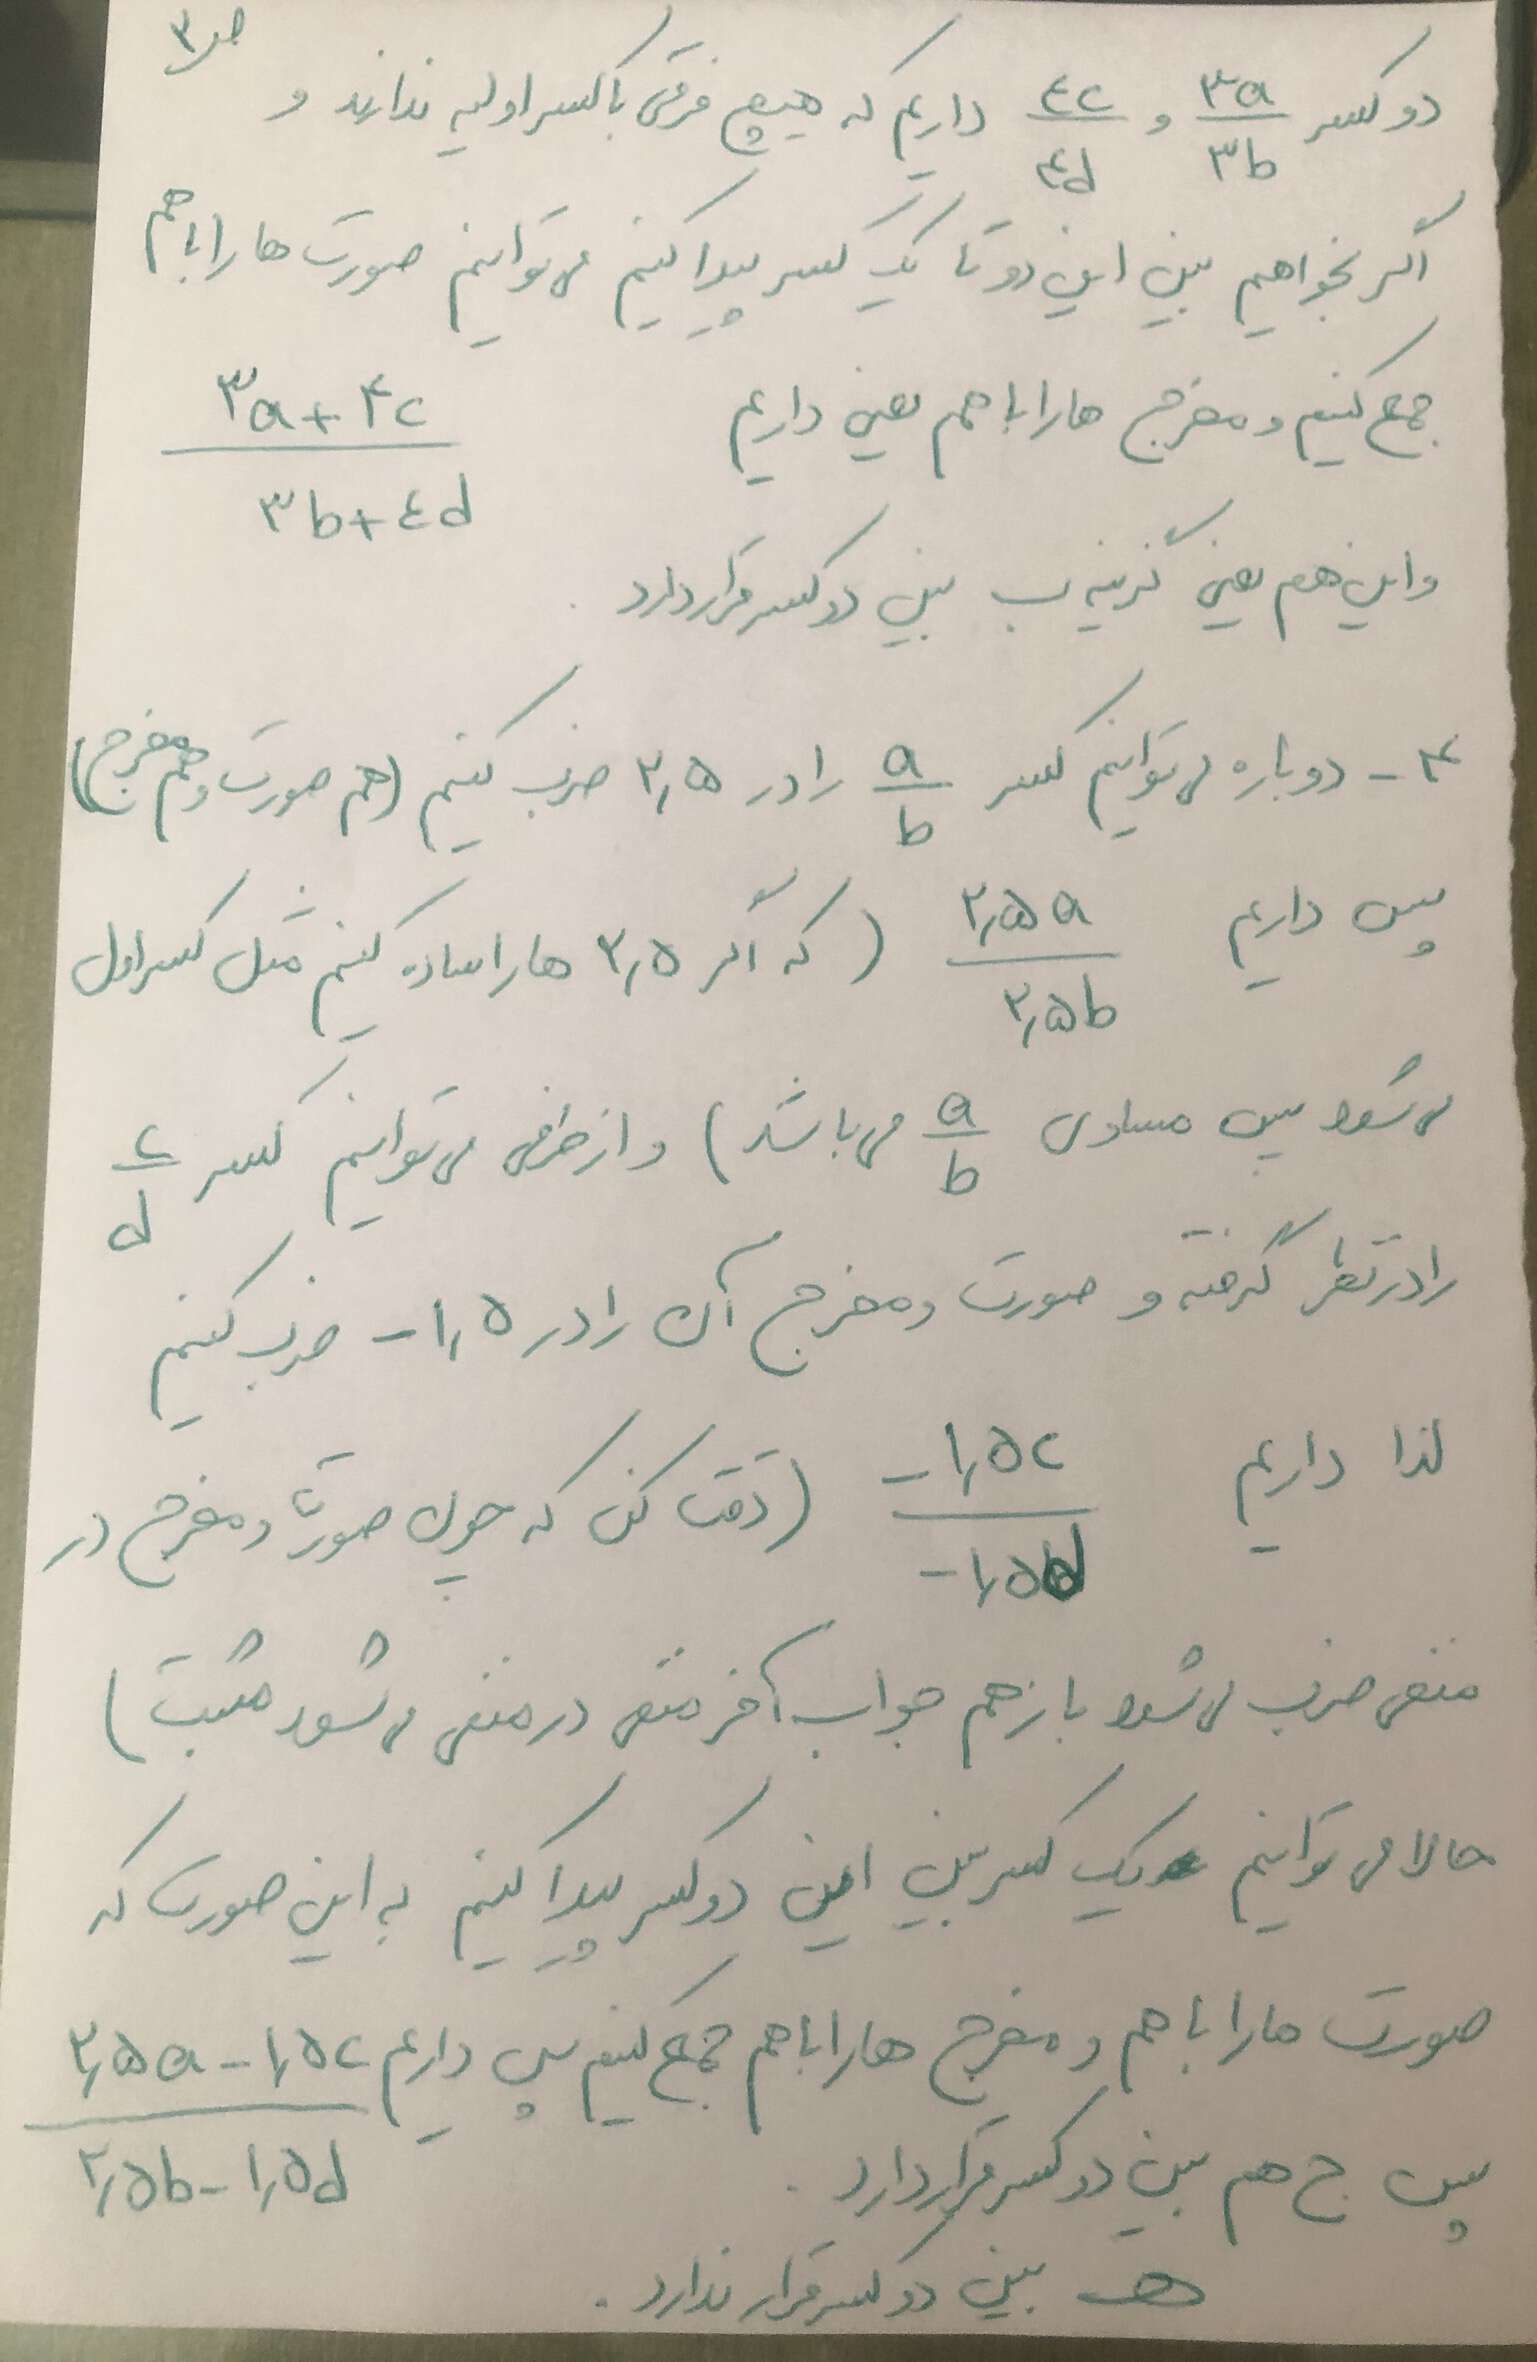 ص ۳
دو کسر ۳a/۳b و ۴c/۴d داریم که هیچ فرقی با کسر اولیه ندارند و
اگر بخواهیم بین این دو تا یک کسر پیدا کنیم می توانیم صورت ها را با هم
جمع کنیم و مخرج ها را با هم یعنی داریم (۳a + ۴c)/(۳b + ۴d)
و این هم یعنی گزینه ب بین دو کسر قرار دارد .
۴ - دوباره می توانیم کسر a/b را در ۲,۵ ضرب کنیم (هم صورت و هم مخرج)
پس داریم ۲,۵a/۲,۵b (که اگر ۲,۵ ها را ساده کنیم مثل کسر اول
می شود پس مساوی a/b می باشد) و از طرفی می توانیم کسر c/d
را در نظر گرفته و صورت و مخرج آن را در ۱,۵- ضرب کنیم
لذا داریم -۱,۵c/-۱,۵d (دقت کن که چون صورت و مخرج در
منفی ضرب می شود باز هم جواب آخر منفی در منفی می شود مثبت)
حالا می توانیم یک کسر بین این دو کسر پیدا کنیم به این صورت که
صورت ها را با هم و مخرج ها را با هم جمع کنیم پس داریم (۲,۵a - ۱,۵c)/(۲,۵b - ۱,۵d)
پس ج هم بین دو کسر قرار دارد .
هـ بین دو کسر قرار ندارد .